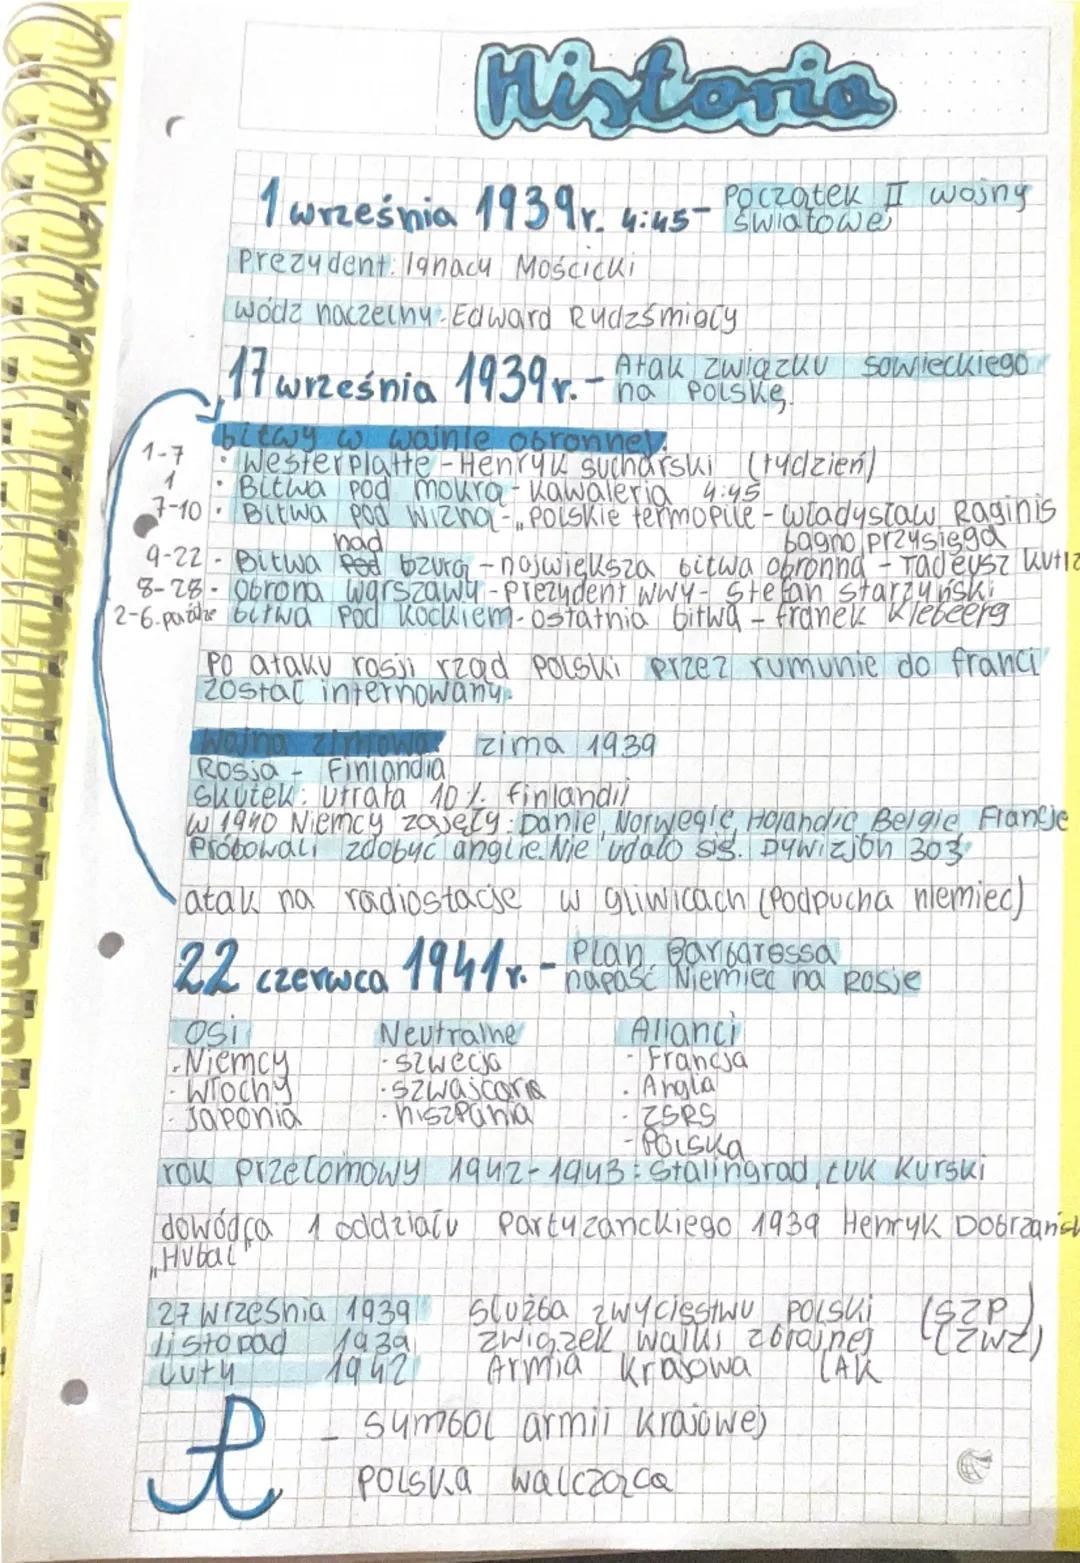 Historia
1 września 1939r. 4:45- Początek II wojny
światowej
Prezydent: Ignacy Mościcki
wódz naczelny-Edward Rydzśmigły
17 września 1939r.- Atak związku sowieckiego
na Polskę.
bitwy w wojnie obronnej:
1-7 • Westerplatte - Henryk sucharski (tydzień)
1 • Bitwa pod mokrą - kawaleria 4:45
7-10 • Bitwa pod Wizną - „polskie termopile - władysław Raginis
nad bagno przysięga
9-22 - Bitwa pod bzurą - największa bitwa obronna - Tadeusz
8-28 - obrona warszawy - prezydent wwy - Stefan starzyński
2-6. bitwa pod kockiem - ostatnia bitwa - franek Klebeerg
Po ataku rosji rząd polski przez rumunie do franci
został internowany.
Wojna zimowa: zima 1939
Rosja - Finlandia
skutek: utrata 10% finlandii
w 1940 Niemcy zajęły: Danie, Norwegie, Holandie Belgie, Francje
Próbowali zdobyć anglie. Nie udało sie. Dywizjon 303
atak na radiostacje w gliwicach (Podpucha niemiec)
22 czerwca 1941r. - Plan Barbarossa
napaść Niemiec na Rosje
Osi Neutralne Alianci
-Niemcy - szwecja - Francja
- Włochy - szwajcaria - Angla
- Japonia - hiszpania - ZSRS
- Polska
rok przełomowy 1942-1943: Stalingrad, Łuk Kurski
dowódca 1 oddziału Partyzanckiego 1939 Henryk Dobrzańsk
„Hubal"
27 Września 1939 służba zwycięstwu polski (SZP)
listopad 1939 związek walki zbrojnej (ZWZ)
luty 1942 Armia Krajowa (AK
- symbol armii krajowej
polska walcząca